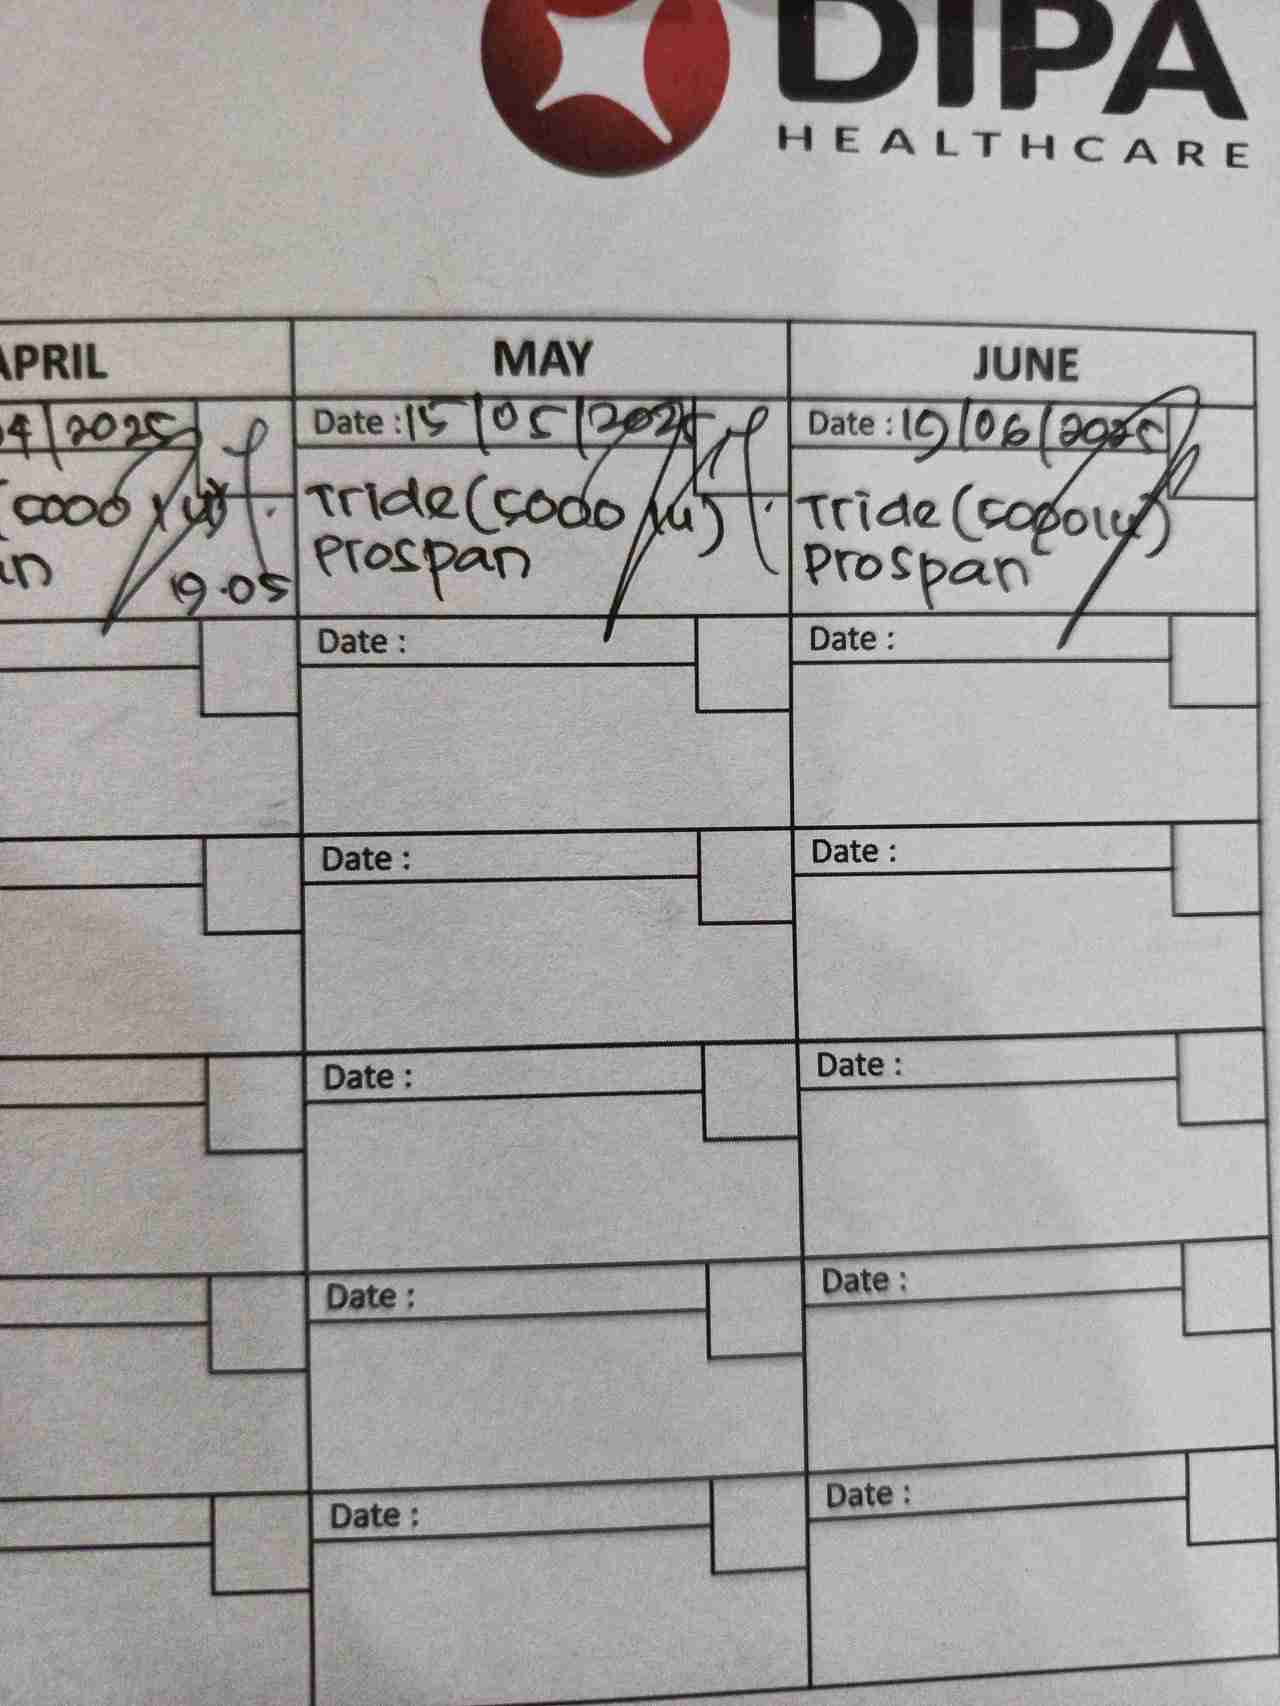 DIPA
HEALTHCARE
APRIL MAY JUNE
04/2025 Date : 15/05/2025 Date : 19/06/2025
(5000 IU) Tride (5000 IU) Tride (5000 IU)
an Prospan Prospan
19.05
Date : Date :
Date : Date :
Date : Date :
Date : Date :
Date : Date :